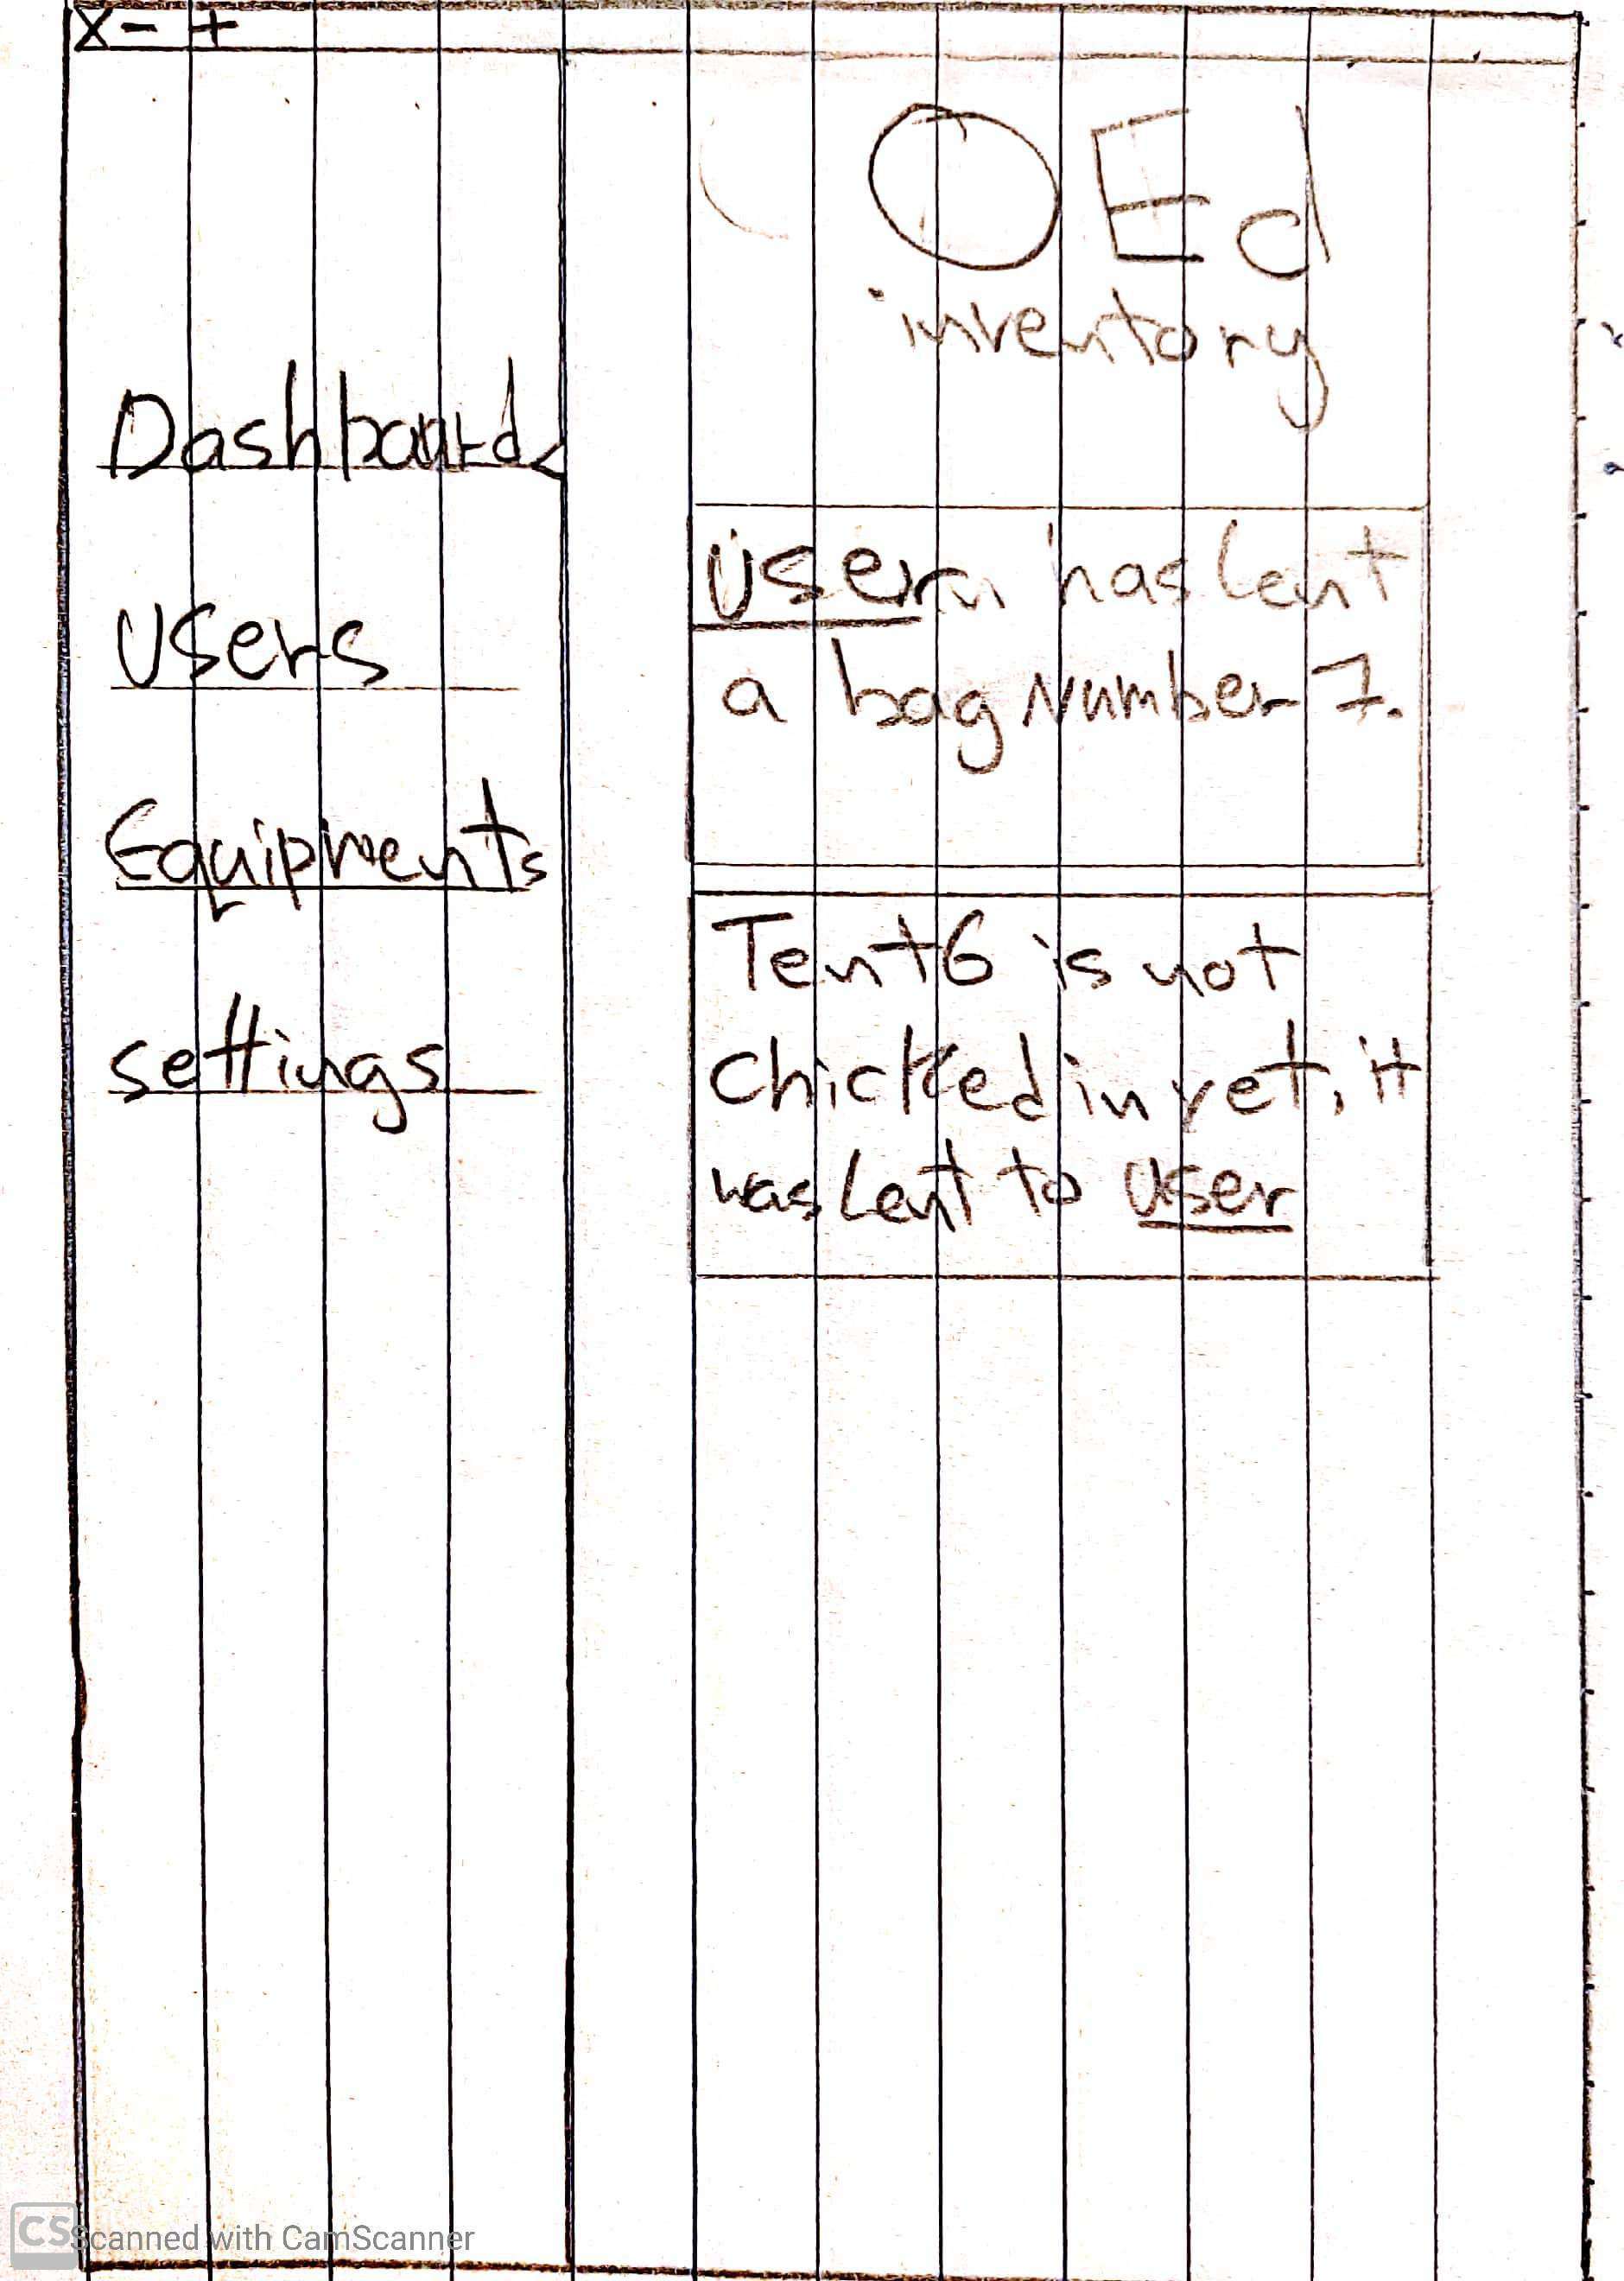 X - +
OEd
inventory
Dashboard
Users
Equipments
settings
User has lent
a bag Number 7.
Tent 6 is not
chicked in yet, it
was lent to user
CS Scanned with CamScanner